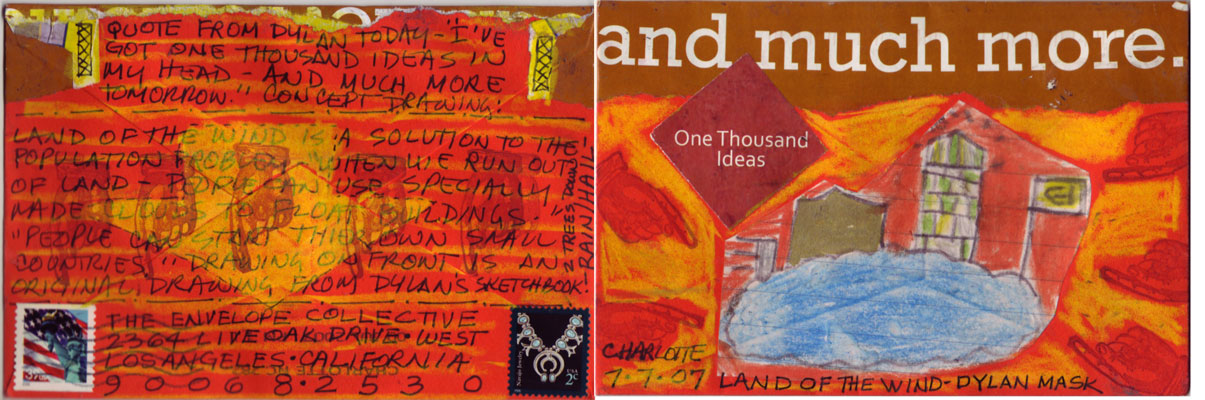 QUOTE FROM DYLAN TODAY - "I'VE
GOT ONE THOUSAND IDEAS IN
MY HEAD - AND MUCH MORE
TOMORROW." CONCEPT DRAWING:
LAND OF THE WIND IS "A SOLUTION TO THE
POPULATION PROBLEM "WHEN WE RUN OUT
OF LAND - PEOPLE CAN USE SPECIALLY
MADE CLOUDS TO FLOAT BUILDINGS."
"PEOPLE CAN START THEIR OWN SMALL
COUNTRIES." DRAWING ON FRONT IS AN
ORIGINAL DRAWING FROM DYLAN'S SKETCHBOOK!
2 TREES DOWN-
RAIN/HAIL-
THE ENVELOPE COLLECTIVE
2364 LIVE OAK DRIVE · WEST
LOS ANGELES · CALIFORNIA
90068·2530
USA
2c
and much more.
One Thousand
Ideas
CHARLOTTE
7·7·07
LAND OF THE WIND - DYLAN MASK